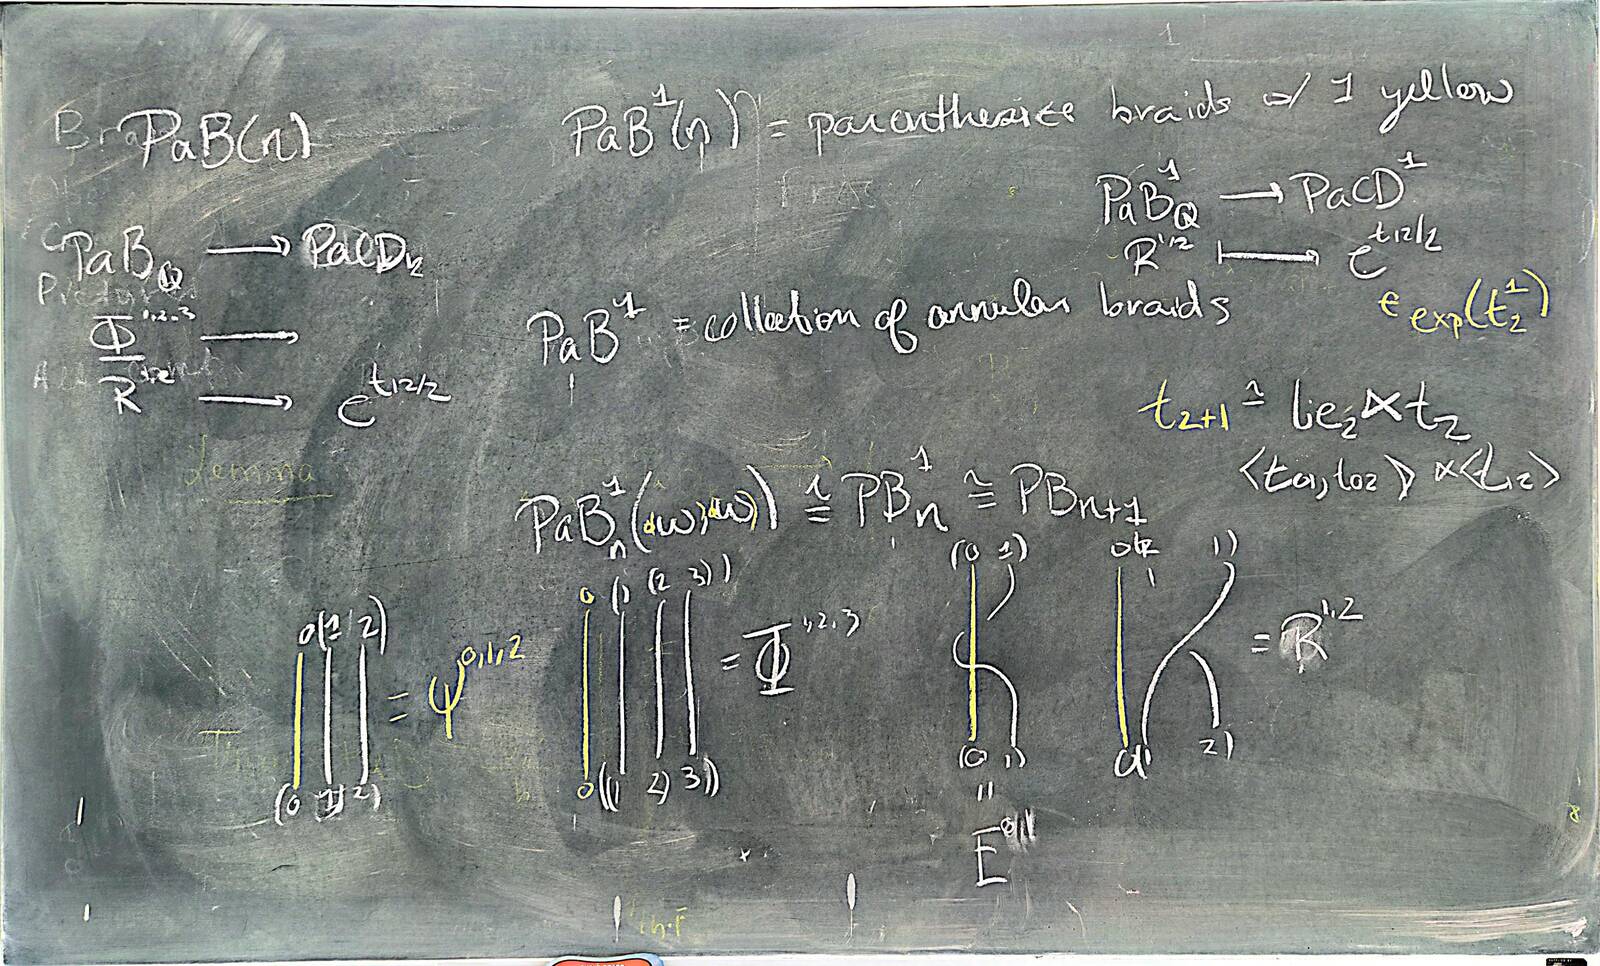 PaB(n)
PaB¹(n) = parenthesize braids w/ 1 yellow
PaB_Q → PaCD
Φ^{1,2,3} →
R^{1,2} → e^{t12/2}
PaB¹_Q → PaCD¹
R^{1,2} ↦ e^{t12/2}
∈ exp(t¹_2)
PaB¹ = collection of annular braids
t_{2+1} ≅ lie_2 ⋊ t_2
<t01, t02> ⋊ <t12>
Lemma
PaB¹_n(ω, ω) ≅ PB¹_n ≅ PB_{n+1}
0(1 2)
= ψ^{0,1,2}
(0 1) 2)
0 (1 (2 3))
= Φ^{1,2,3}
0 ((1 2) 3))
(0 1)
(0 1)
||
E^{0,1}
1)
= R^{1,2}
2)